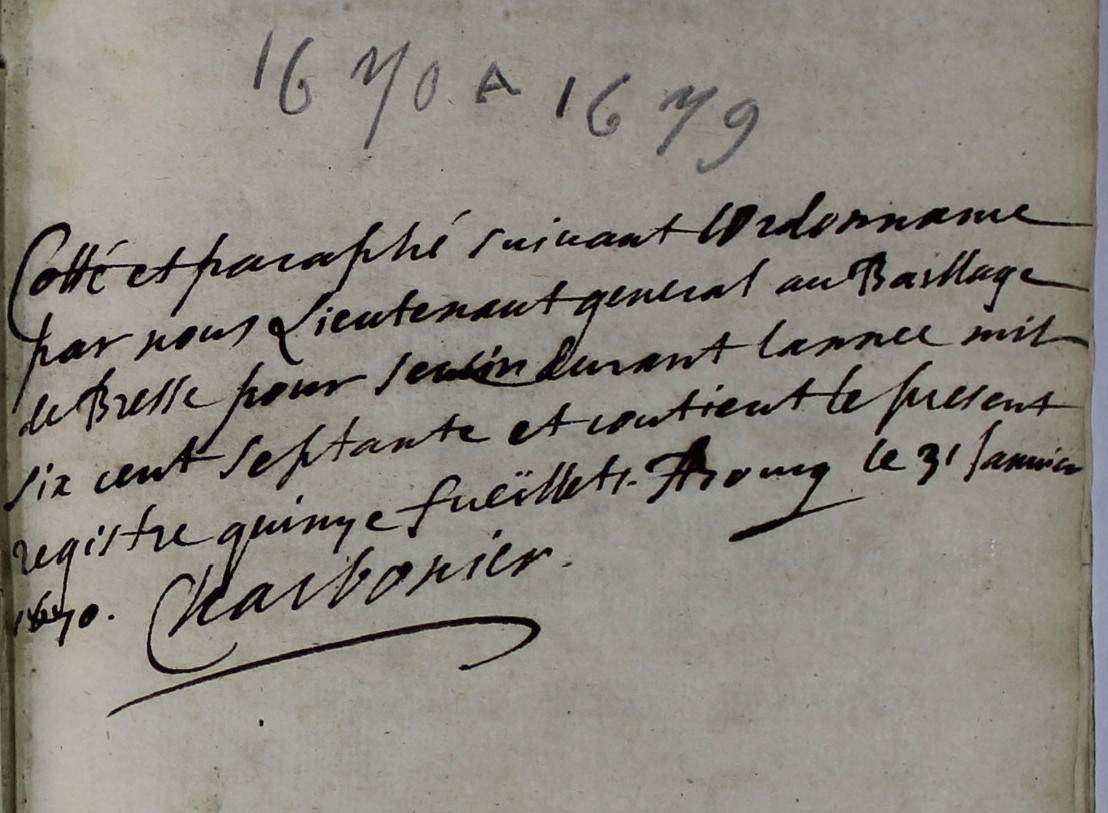 1670 A 1679
Cotté et paraphé suivant lOrdonnance
par nous Lieutenant general au Baillage
de Bresse pour servir durant lannee mil
six cent septante et contient le present
registre quinze fueïllets. A Bourg le 31 Janvier
1670. Charbonier.